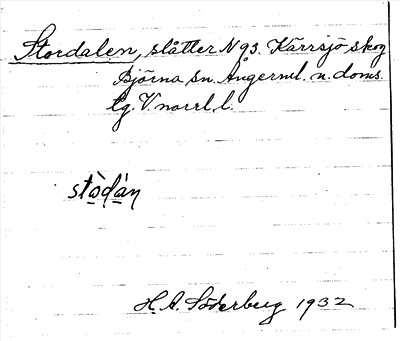 Stordalen, slåtter N 93. Kärrsjö skog
Björna sn. Ångerml. n. doms.
lg. V.norrl. l.
stòdàn
H.A. Söderberg 1932